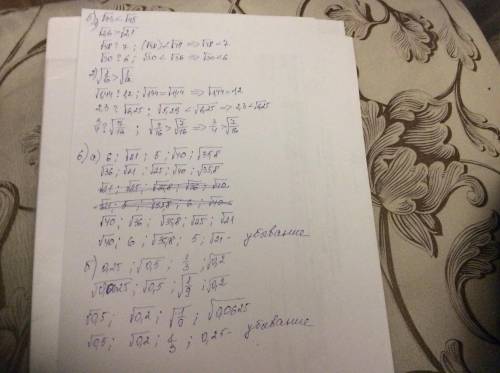 √2,6 > √2,1
√48 ? 7 ; √48 < √49 ⟹ √48 < 7
√30 ? 6 ; √30 < √36 ⟹ √30 < 6
√1,44 ? 1,2 ; √1,44 = √1,44 ⟹ √1,44 = 1,2
2,3 ? √6,25 ; √5,29 < √6,25 ⟹ 2,3 < √6,25
6) а) 6 ; √21 ; 5 ; √40 ; √35,8
√36 ; √21 ; √25 ; √40 ; √35,8
√21 ; √25 ; √35,8 ; √36 ; √40
√21 ; 5 ; √35,8 ; 6 ; √40
√40 ; √36 ; √35,8 ; √25 ; √21
√40 ; 6 ; √35,8 ; 5 ; √21 - убывание
б) 0,25 ; √0,5 ; 1/3 ; √0,2
√0,0625 ; √0,5 ; √1/9 ; √0,2
√0,5 ; √0,2 ; √1/9 ; √0,0625
√0,5 ; √0,2 ; 1/3 ; 0,25 - убывание